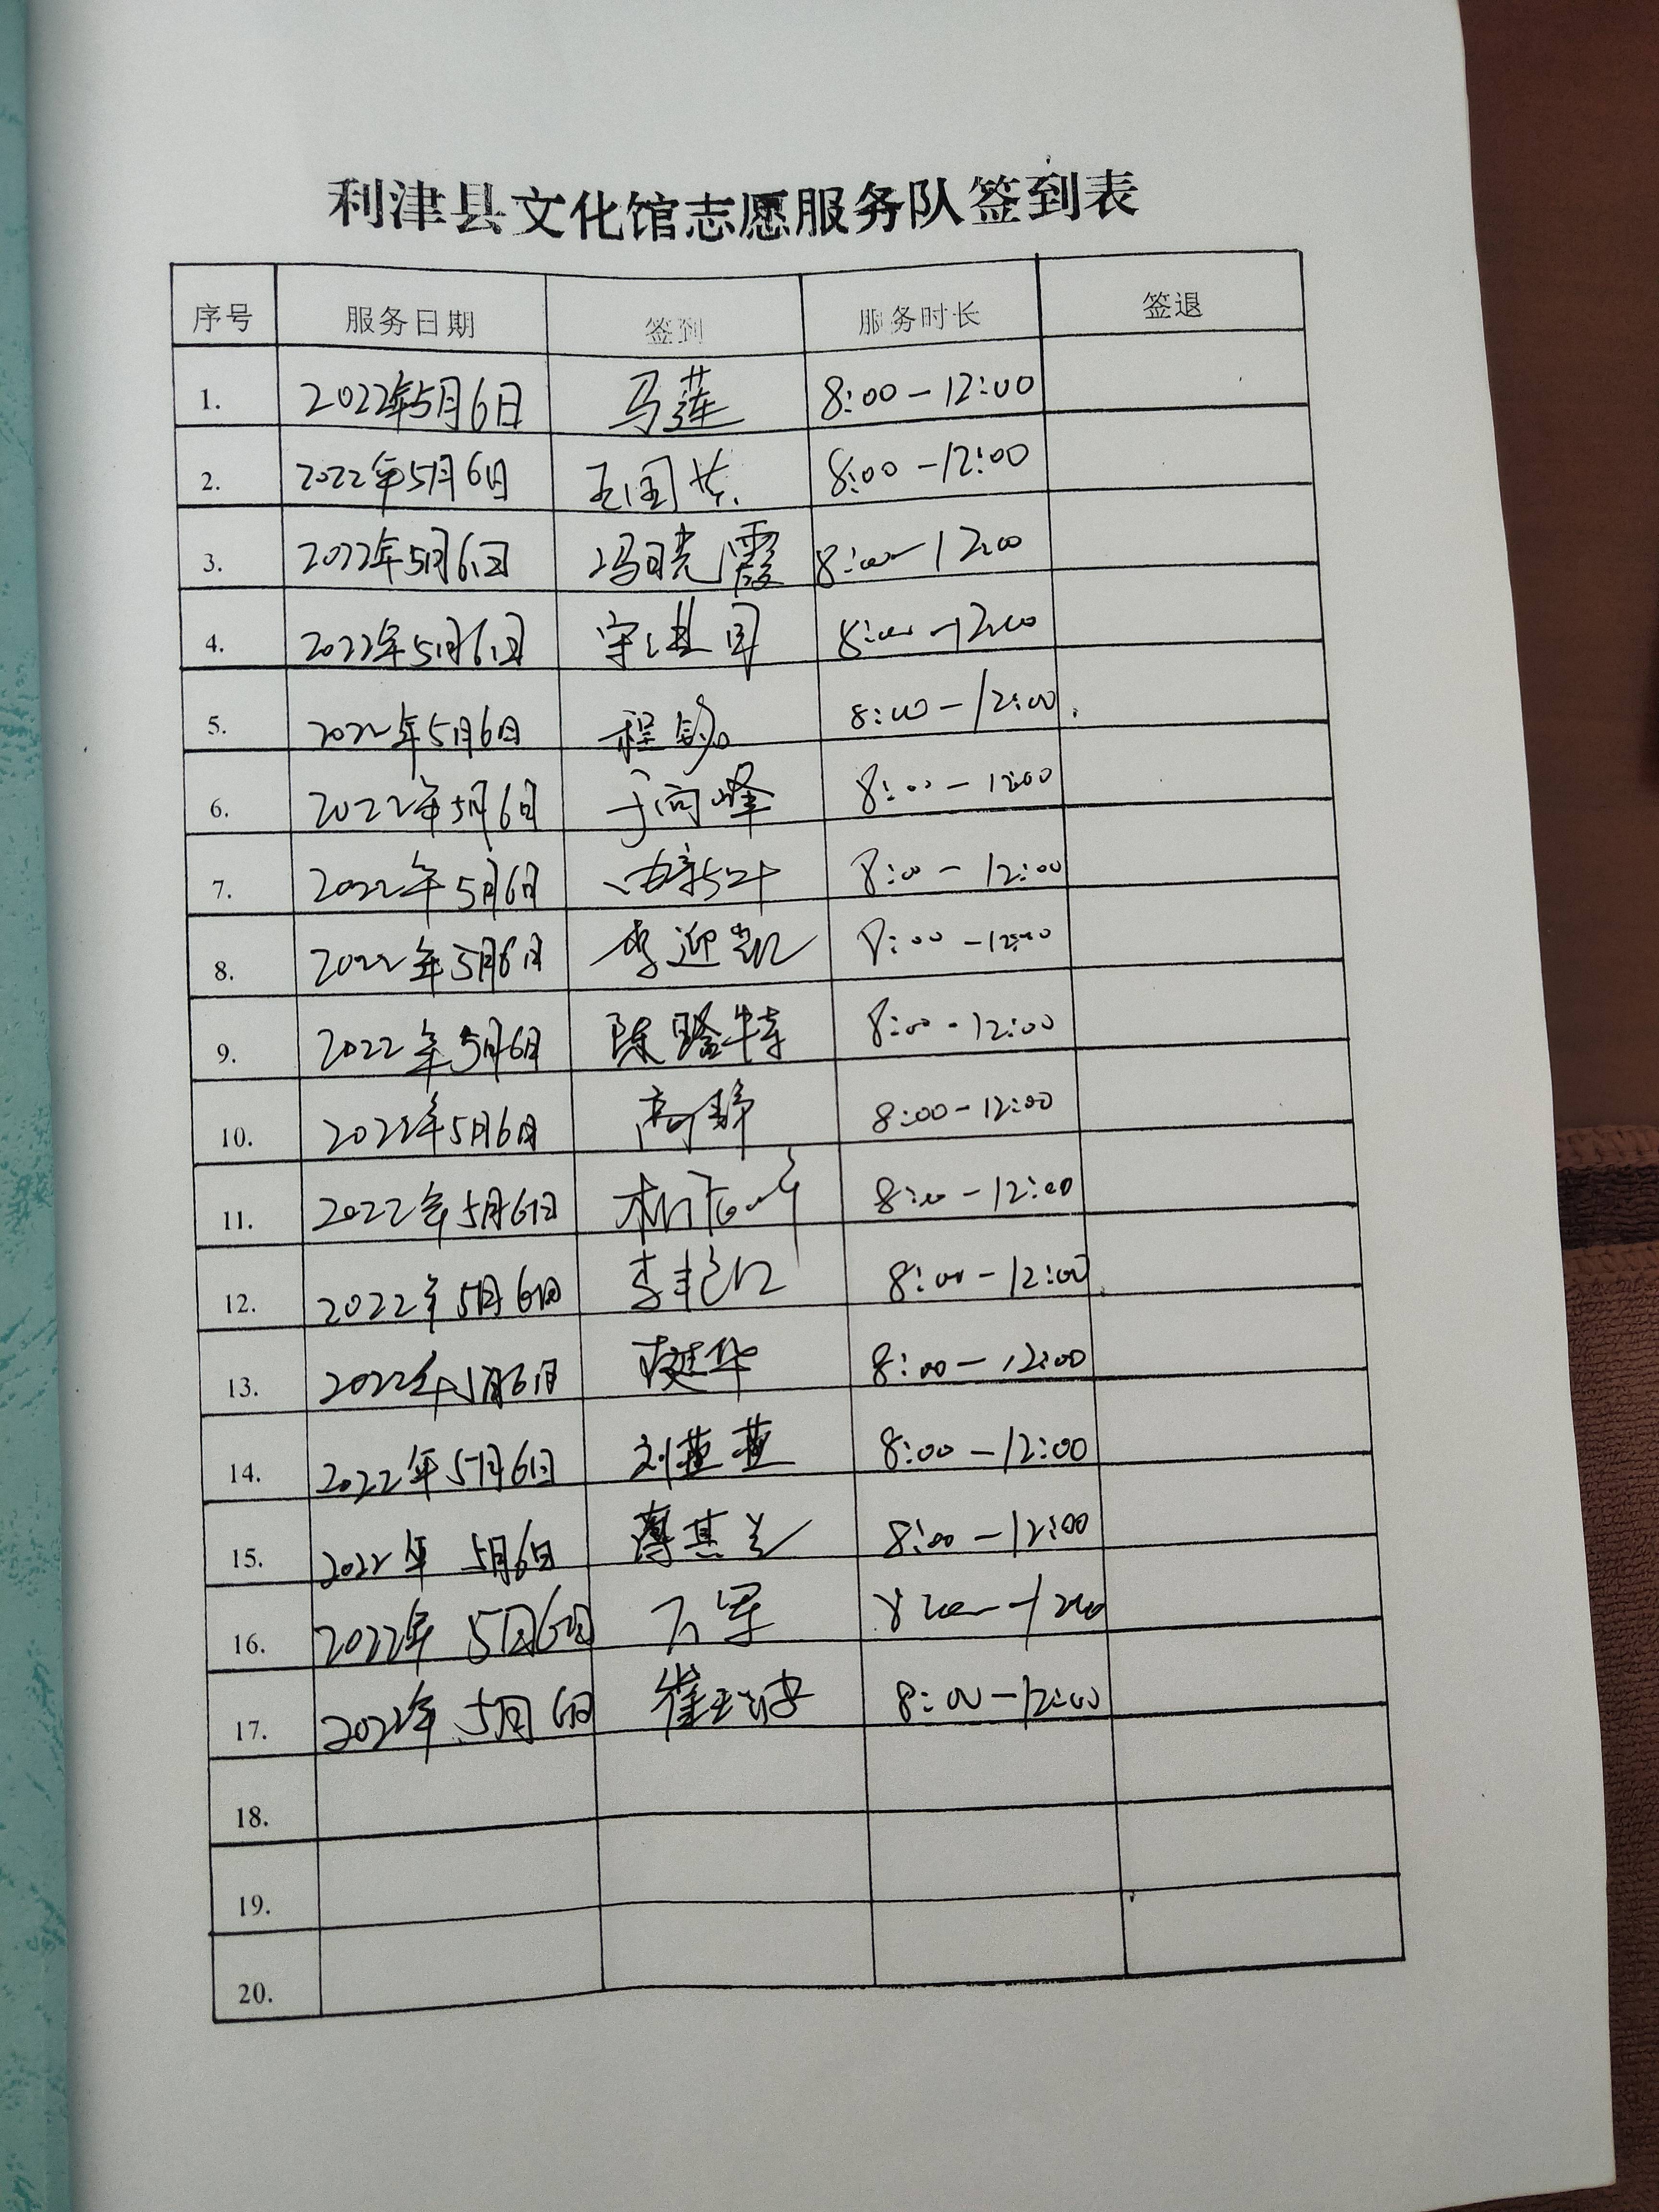 利津县文化馆志愿服务队签到表
序号 服务日期 签到 服务时长 签退
1. 2022年5月6日 马莲 8:00-12:00
2. 2022年5月6日 王国 8:00-12:00
3. 2022年5月6日 冯晓霞 8:00-12:00
4. 2022年5月6日 8:00-12:00
5. 2022年5月6日 程 8:00-12:00.
6. 2022年5月6日 于向峰 8:00-12:00
7. 2022年5月6日 8:00-12:00
8. 2022年5月6日 李迎凯 8:00-12:00
9. 2022年5月6日 陈璐特 8:00-12:00
10. 2022年5月6日 高静 8:00-12:00
11. 2022年5月6日 8:00-12:00
12. 2022年5月6日 李艳红 8:00-12:00.
13. 2022年5月6日 8:00-12:00
14. 2022年5月6日 刘燕燕 8:00-12:00
15. 2022年5月6日 薄其兰 8:00-12:00
16. 2022年5月6日 石军 8:00-12:00
17. 2022年5月6日 崔玉波 8:00-12:00
18.
19.
20.